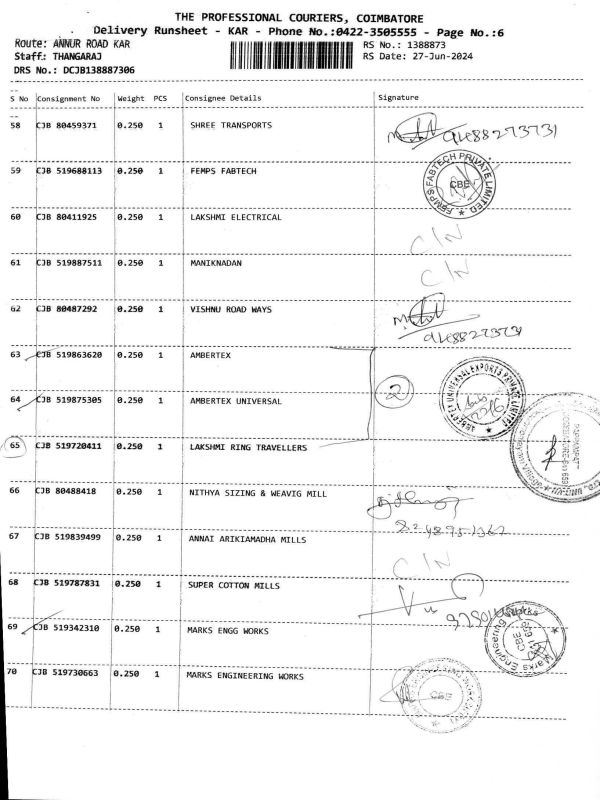 THE PROFESSIONAL COURIERS, COIMBATORE
Delivery Runsheet - KAR - Phone No.:0422-3505555 - Page No.:6
Route: ANNUR ROAD KAR RS No.: 1388873
Staff: THANGARAJ RS Date: 27-Jun-2024
DRS No.: DCJB138887306
S No Consignment No Weight PCS Consignee Details Signature
58 CJB 80459371 0.250 1 SHREE TRANSPORTS 9488273731
59 CJB 519688113 0.250 1 FEMPS FABTECH
FEMPS FABTECH PRIVATE LIMITED
CBE
60 CJB 80411925 0.250 1 LAKSHMI ELECTRICAL C/N
61 CJB 519887511 0.250 1 MANIKNADAN C/N
62 CJB 80487292 0.250 1 VISHNU ROAD WAYS
9488273731
63 CJB 519863620 0.250 1 AMBERTEX
64 CJB 519875305 0.250 1 AMBERTEX UNIVERSAL 2
AMBERTEX UNIVERSAL EXPORTS PRIVATE LIMITED
65 CJB 519720411 0.250 1 LAKSHMI RING TRAVELLERS
66 CJB 80488418 0.250 1 NITHYA SIZING & WEAVIG MILL
67 CJB 519839499 0.250 1 ANNAI ARIKIAMADHA MILLS C/N
68 CJB 519787831 0.250 1 SUPER COTTON MILLS
69 CJB 519342310 0.250 1 MARKS ENGG WORKS
Marks Engineering Works
70 CJB 519730663 0.250 1 MARKS ENGINEERING WORKS
CBE